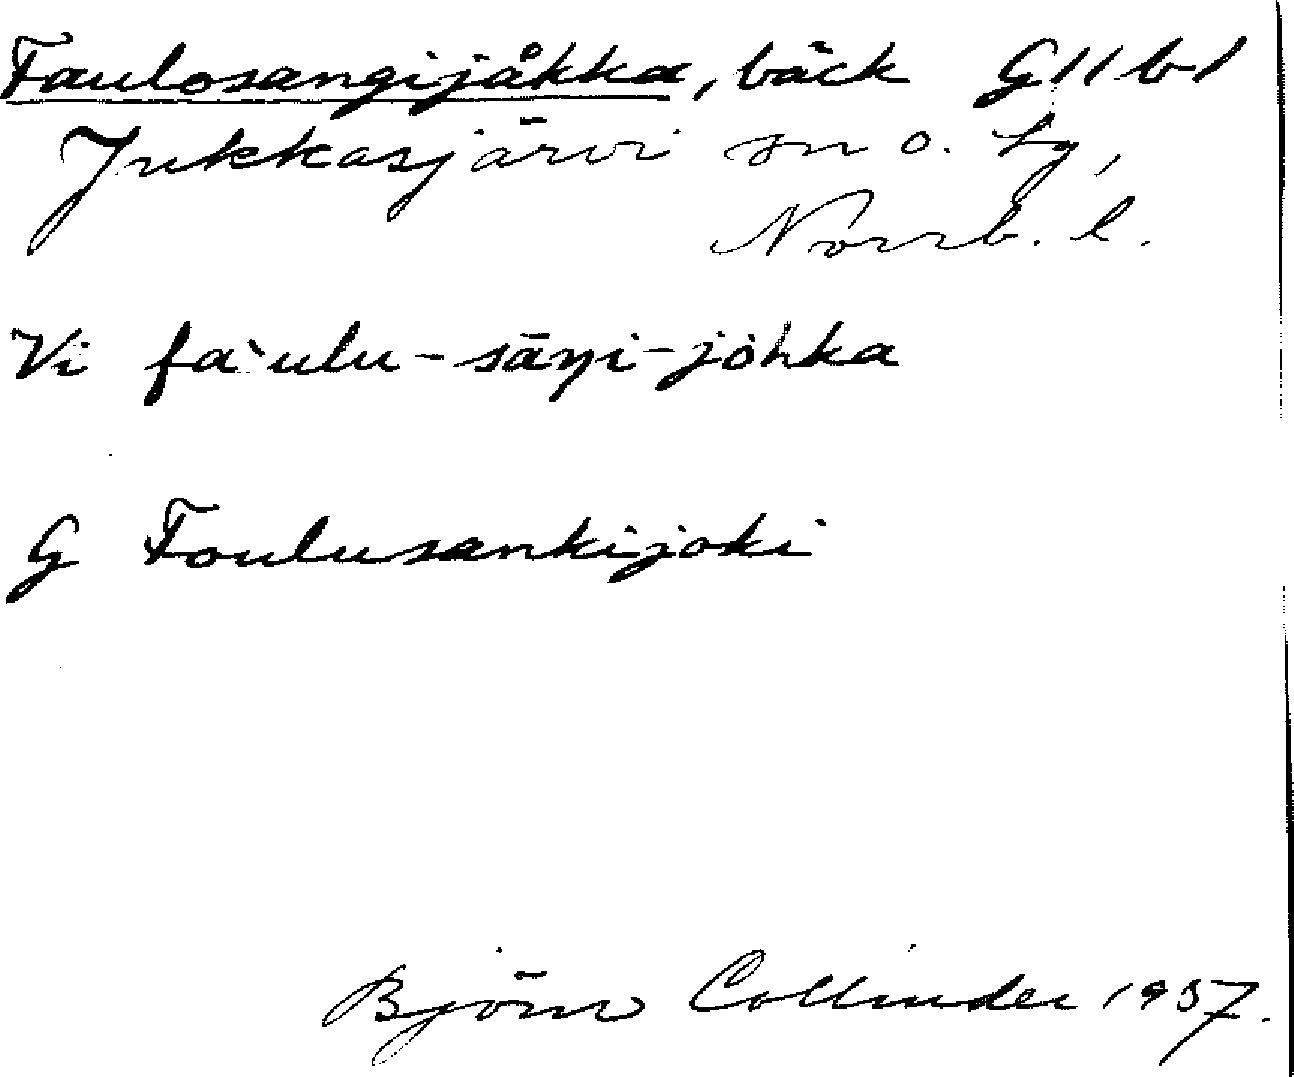 Faulosangijåkka, bäck G 11 b 1
Jukkasjärvi sn o. tg,
Norrb. l.
Vi fa`ulu-sāŋi-johka
G Foulusankijoki
Björn Collinder 1957.